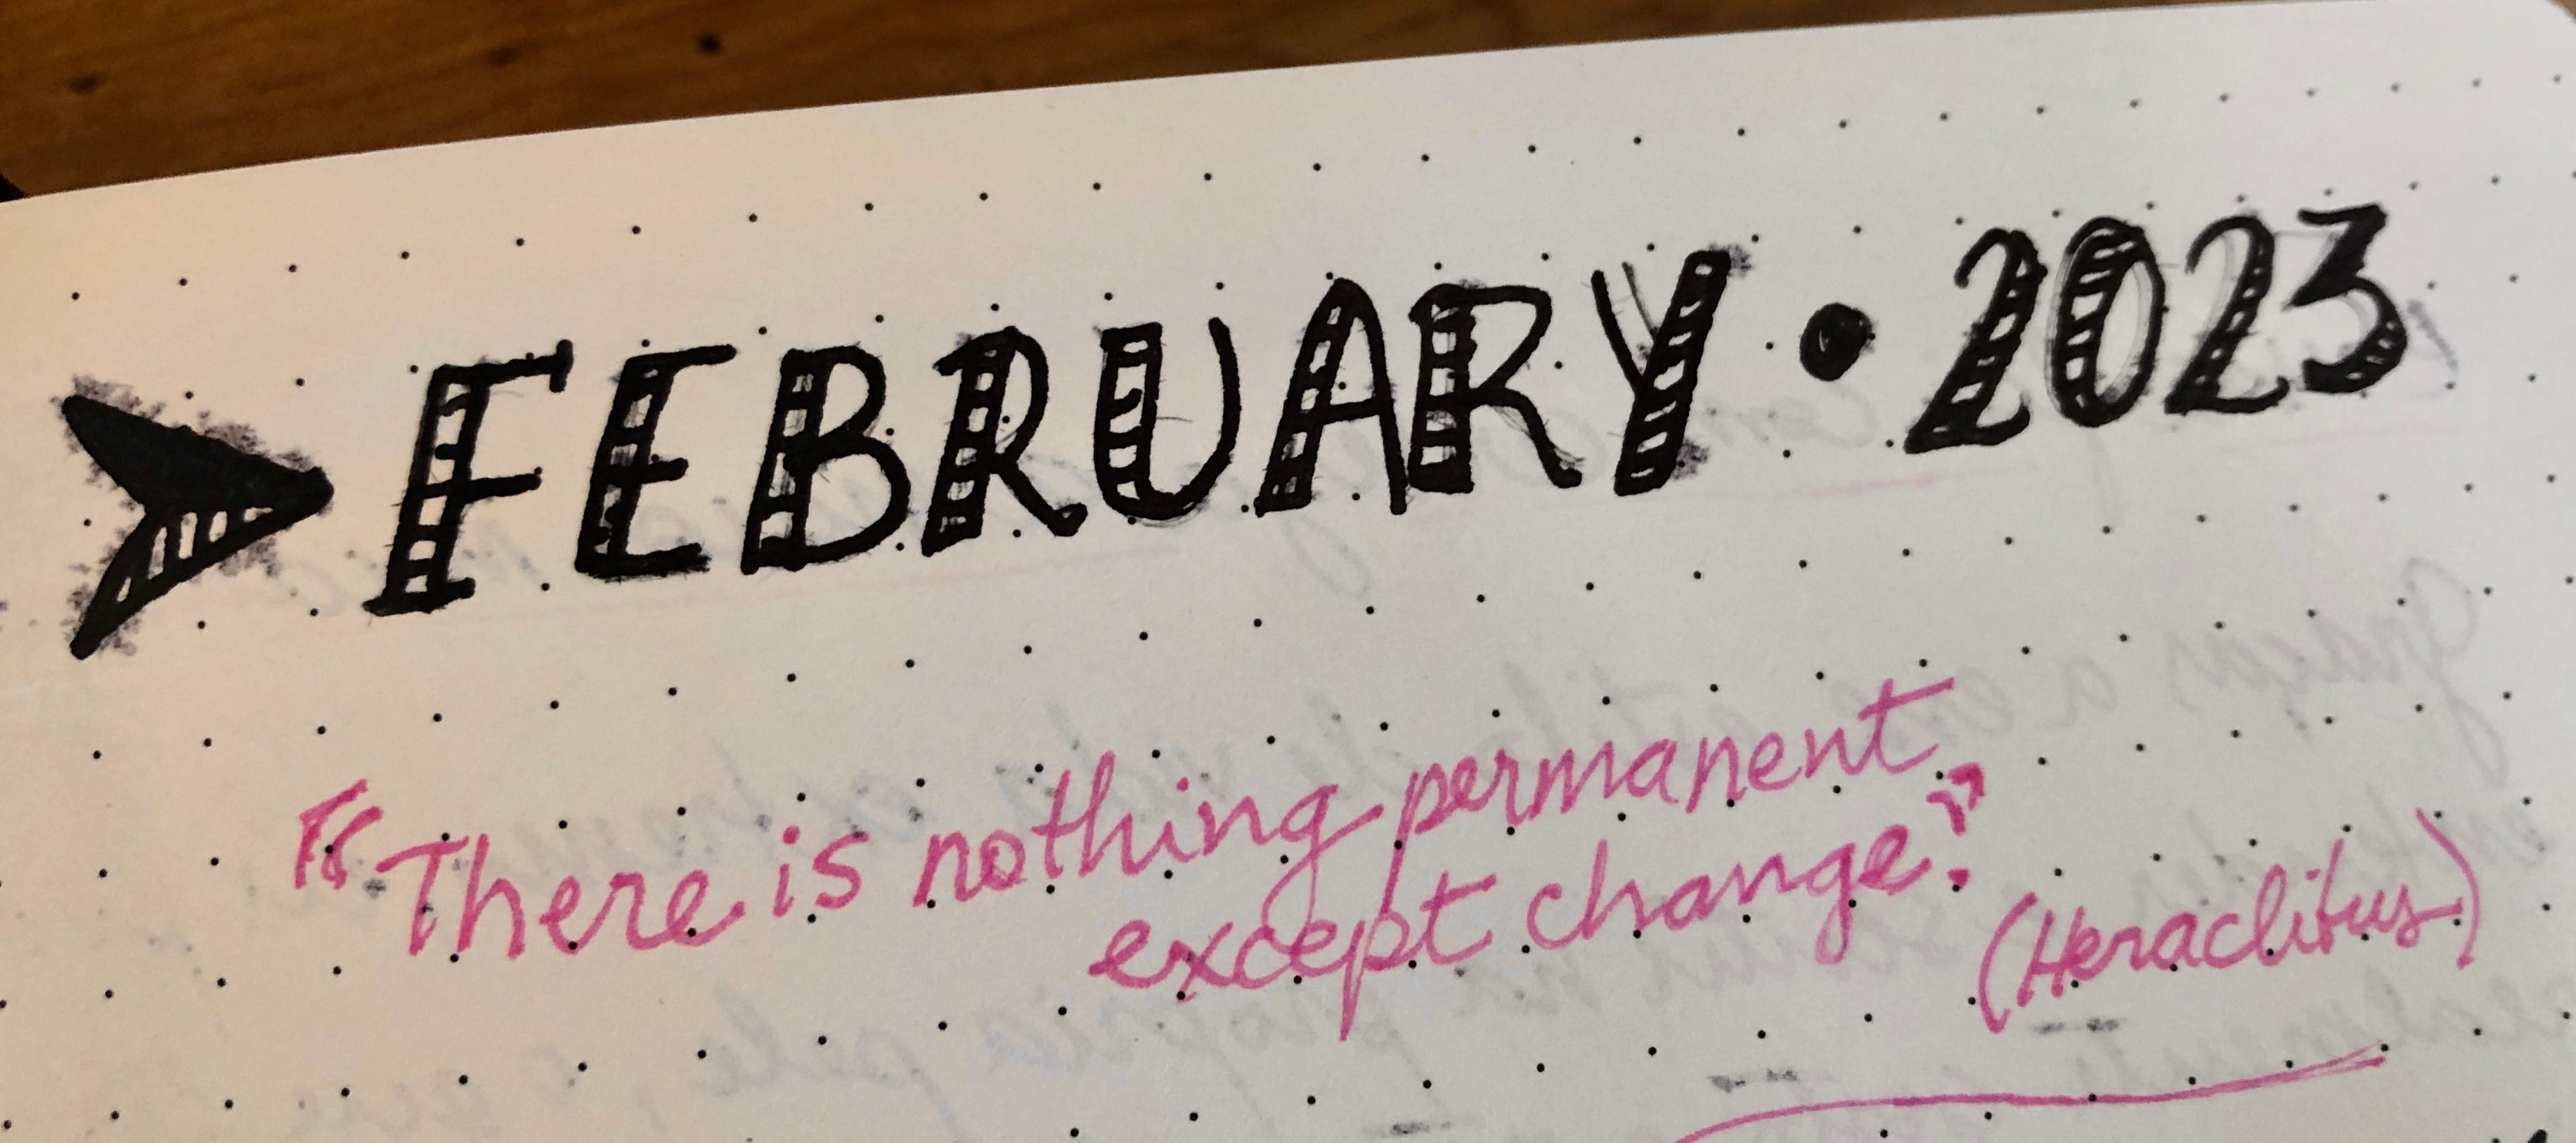 ➤ FEBRUARY • 2023
"There is nothing permanent
except change."
(Heraclitus)